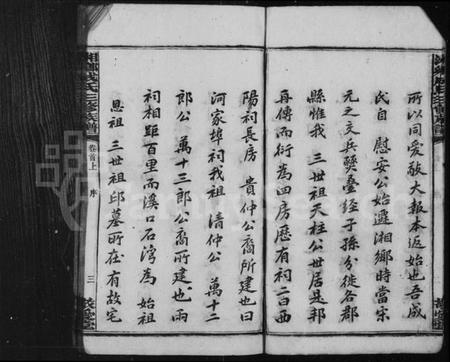 所以同爱敬大報本返始也吾成
氏自 慰安公始遷湘鄉時當宋
元之交兵燹疊經子孫分徙各郡
縣惟我 三世祖天柱公世居是邦
再傳而衍為四房歷有祠二曰西
陽祠長房 貴仲公裔所建也曰
河家埠祠我祖 清仲公 萬十二
郎公 萬十三郎公裔所建也兩
祠相距百里而溪口石灣為 始祖
恩祖 三世祖邱墓所在有故宅
卷首上 序 三